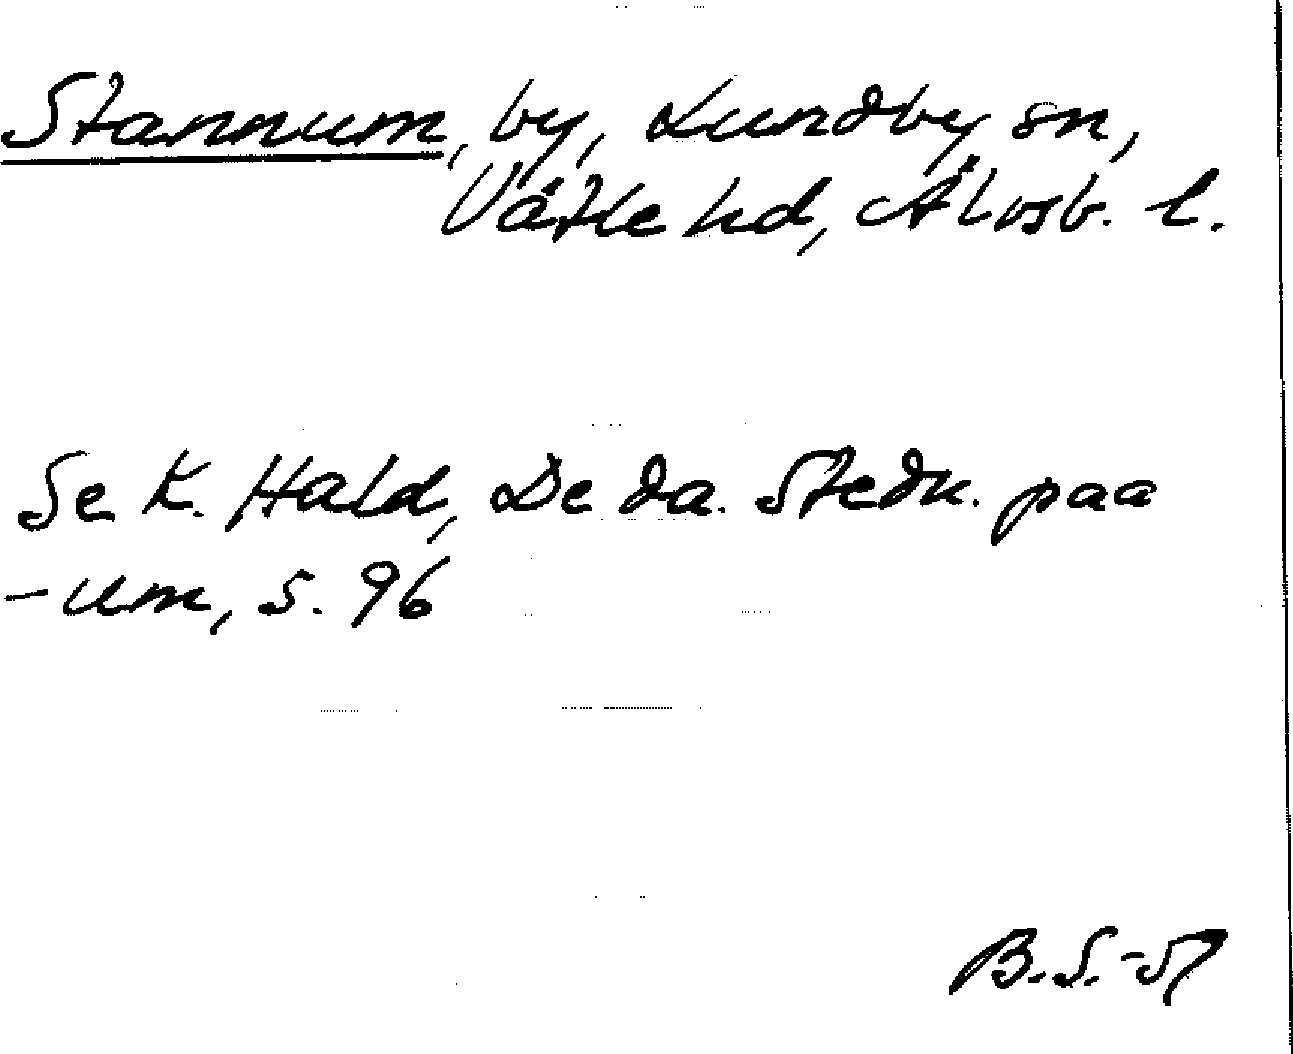 Stannum, by, Lundby sn,
Vättle hd, Älvsb. l.
Se K. Hald, De da. Stedn. paa
-um, s. 96
B.S.-57